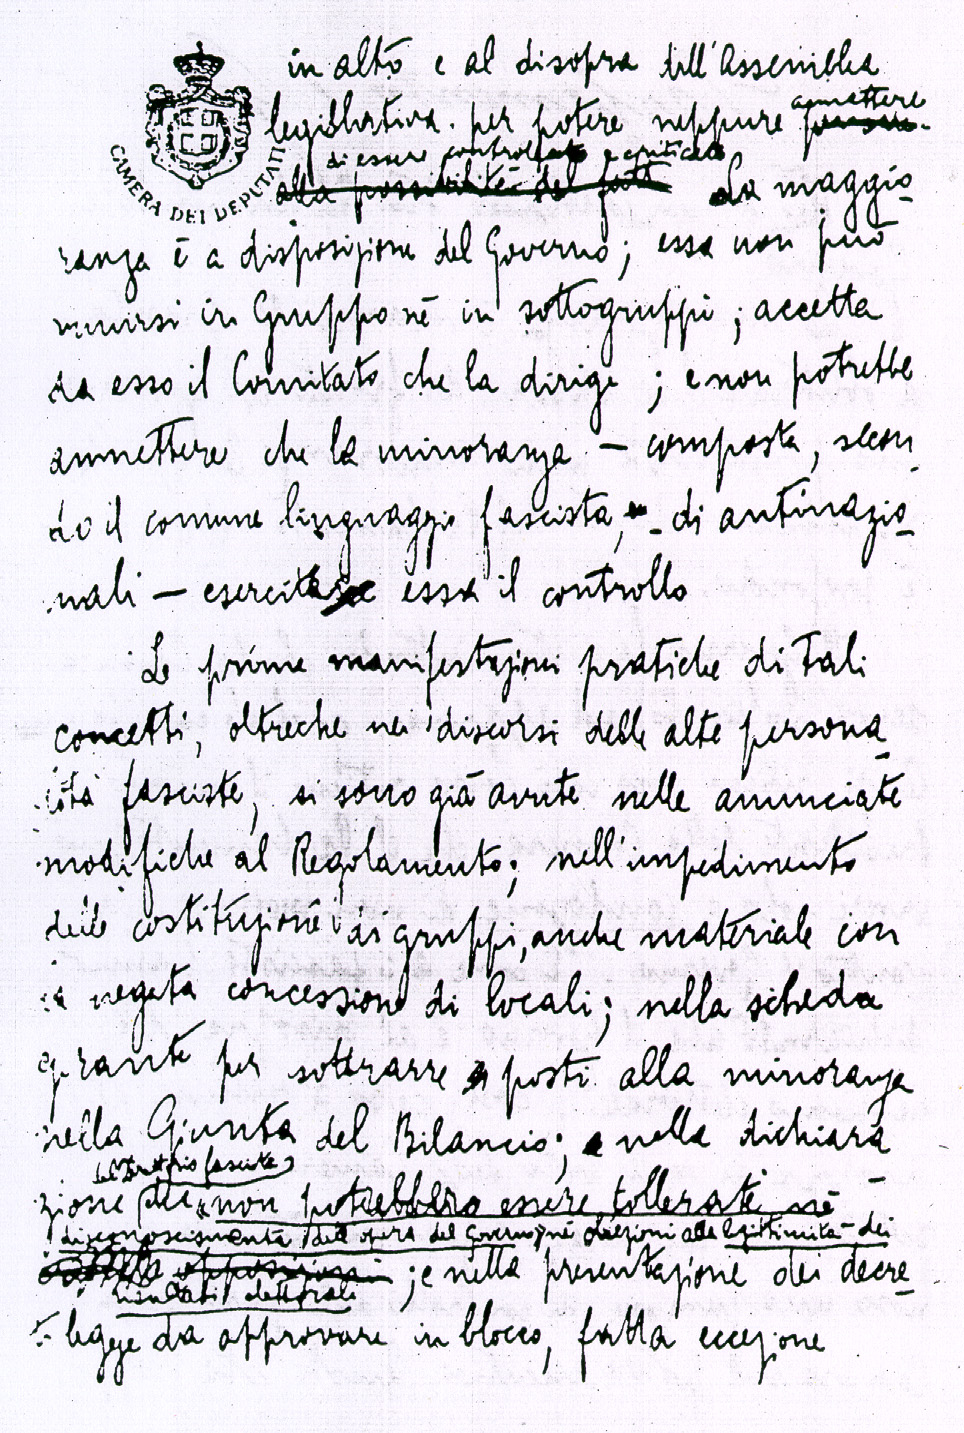 in alto e al disopra dell'Assemblea
CAMERA DEI DEPUTATI
ammettere
legislativa per potere neppure pensare
di essere controllato e criticato
alla possibilità del fatto La maggio-
ranza è a disposizione del Governo; essa non può
riunirsi in Gruppo nè in sottogruppi; accetta
da esso il Comitato che la dirige; e non potrebbe
ammettere che la minoranza – composta, secon-
do il comune linguaggio fascista, di antinazio-
nali – eserciti essa il controllo
Le prime manifestazioni pratiche di tali
concetti, oltreche nei discorsi delle alte persona-
lità fasciste, si sono già avute nelle annunciate
modifiche al Regolamento; nell'impedimento
della costituzione di gruppi, anche materiale con
la negata concessione di locali; nella scheda
girante per sottrarre posti alla minoranza
nella Giunta del Bilancio; nella dichiara-
del Direttorio fascista
zione che «non potrebbero essere tollerate nè
disconoscimenti dell'opera del Governo, nè obiezioni alla legittimità dei
opposizioni ; e nella presentazione dei decre-
risultati elettorali
ti legge da approvare in blocco, fatta eccezione